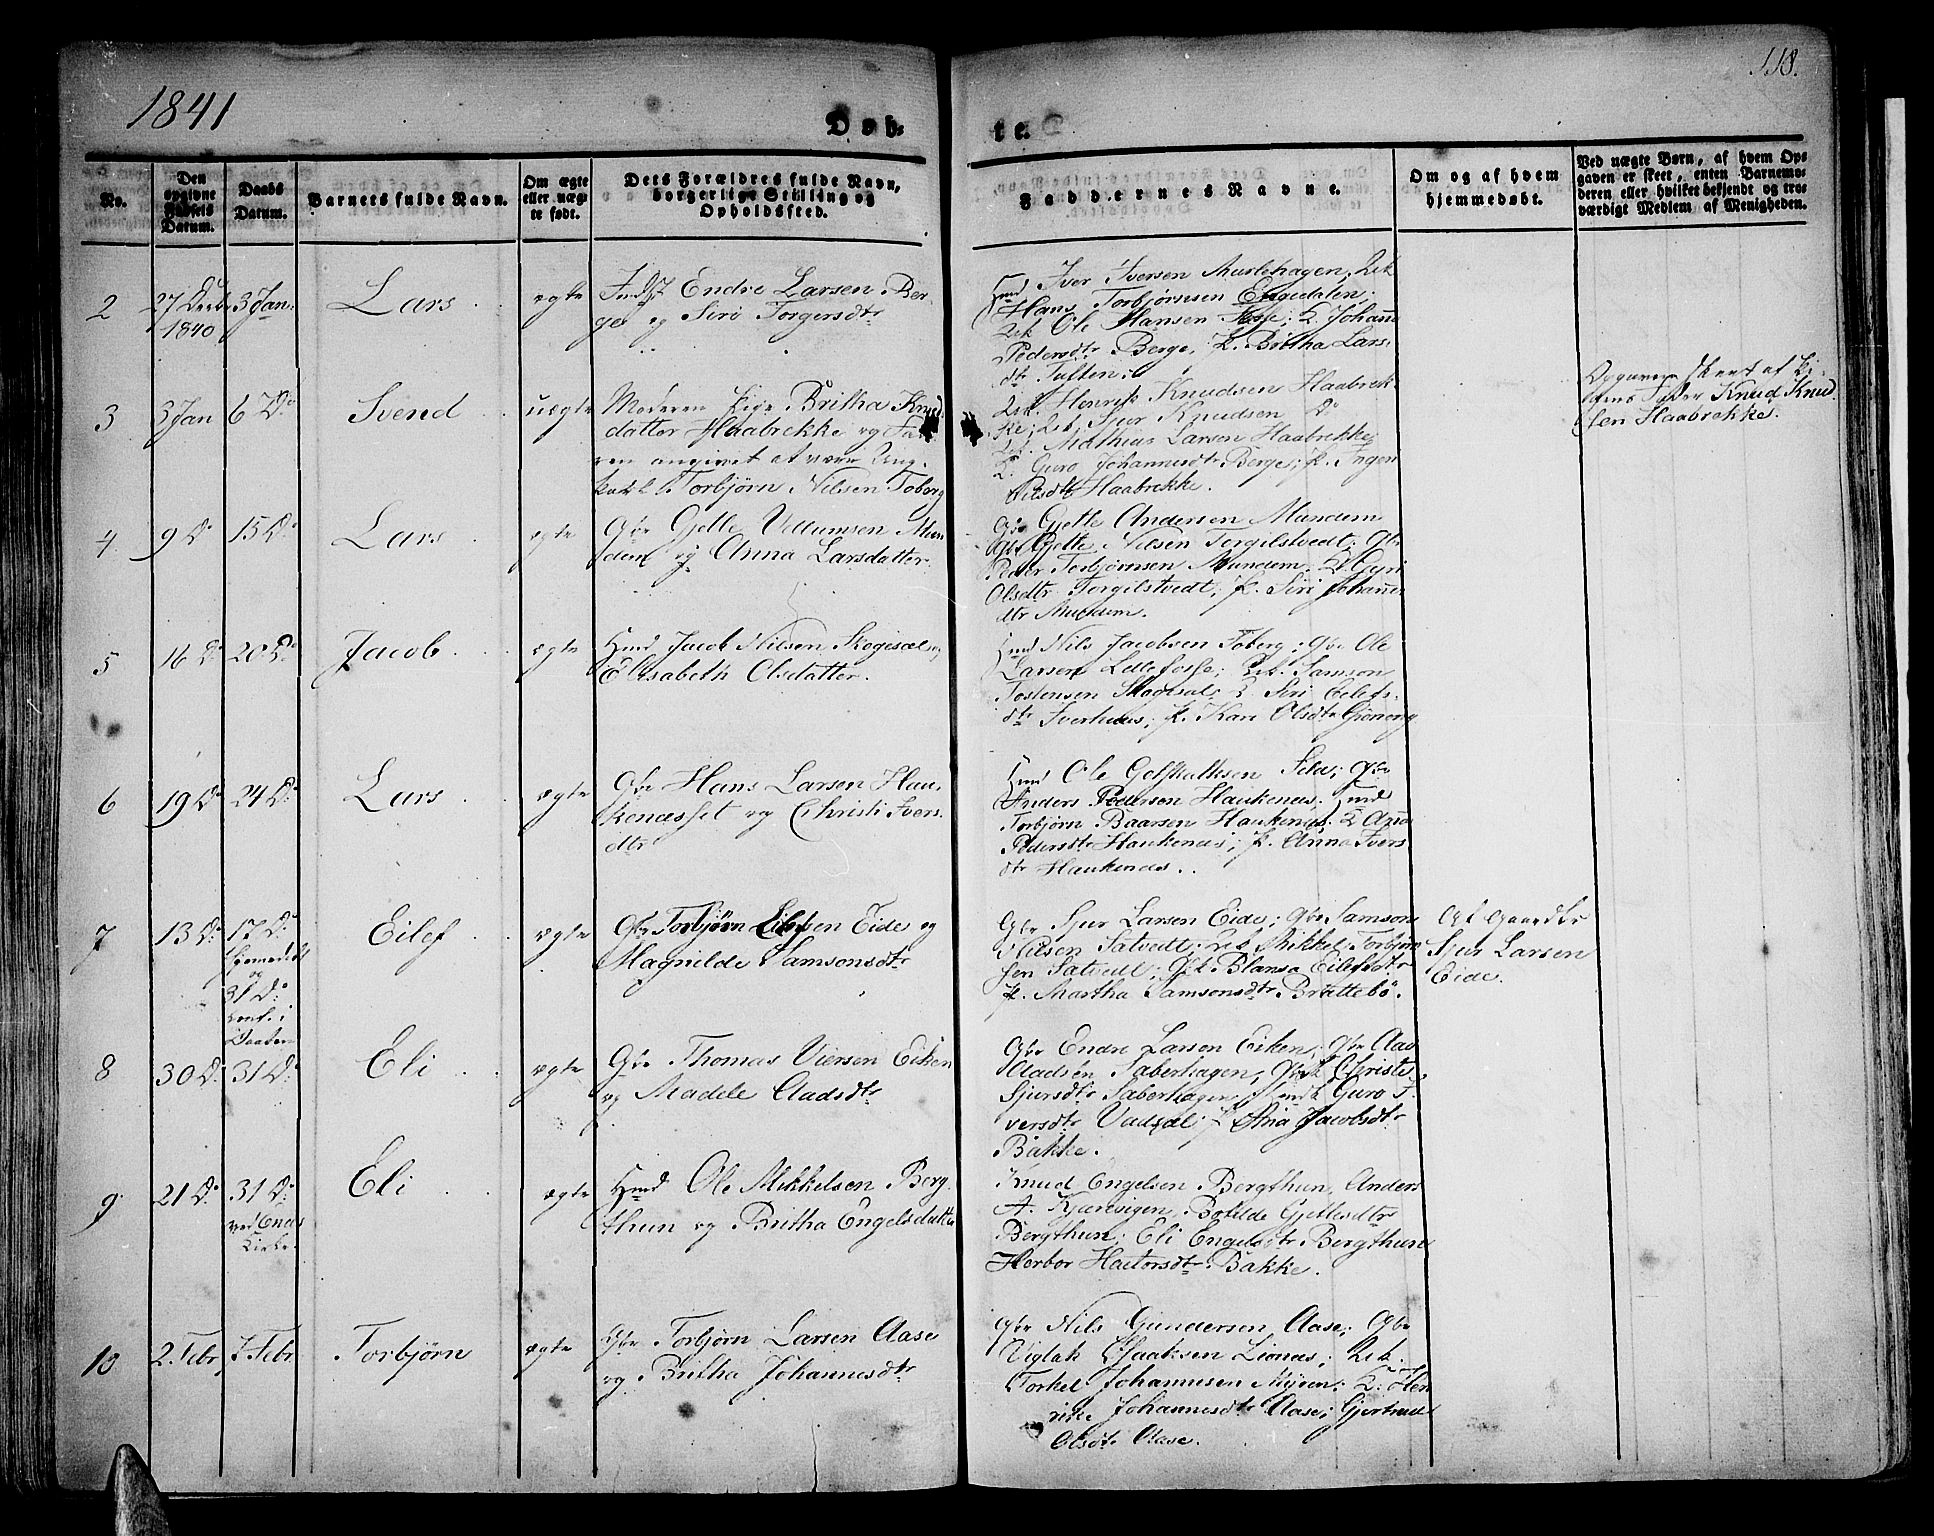 1841
118.
Døb-
te.
No.
Den
opgivne
Fødsels
Datum.
Daabs
Datum.
Barnets fulde Navn.
Om ægte
eller uæg-
te født.
Dets Forældres fulde Navn,
borgerlige Stilling og
Opholdssted.
Faddernes Navne.
Om og af hvem
hjemmedøbt.
Ved uægte Børn, af hvem Op-
gaven er skeet, enten Barnemo-
deren eller hvilket bekjendt og tro-
værdigt Medlem af Menigheden.
2
27 Decbr
1840
3 Jan:
Lars
ægte
Indst Endre Larsen Ber-
ge og Siri Torgersdtr
Hmd Iver Iversen
Hans Torbjørnsen Engedalen;
Ole Hansen; P. Johanna
Pedersdtr Berge, P. Britha Lars-
dtr Tuften.
3
3 Jan
6 Do
Svend
uægte
Moderen Pige Britha Knud-
datter Haabrekke og Fa-
ren angivet at være Ung-
karl Torbjørn Nilsen Toberg
Henrik Knudsen Haabrek-
ke; Sjur Knudsen Do
Mathias Larsen Haabrekke
Guro Johannesdtr Berge; P. Ingeri
Nilsdtr Haabrekke.
Opgaven skeet af Pi-
gens Fader Knud Knud-
sen Haabrekke.
4
9 Do
15 Do
Lars
ægte
Gbr Gjelle Villumsen Mun-
dem og Anna Larsdatter.
Gbr Gjelle Andersen Mundem
Gbr Gjelle Nilsen Torgilstvedt; Gbr
Peder Torbjørnsen Mundem; Gyri
Olsdtr Torgilstvedt; P. Siri Johannes-
dtr Mundem.
5
16 Do
20 Do
Jacob
ægte
Hmd Jacob Nilsen Skogesæl og
Elisabeth Olsdatter.
Hmd Nils Jacobsen Toberg; Gbr Ole
Larsen Lillefosse; Samson
Tostensen Skogesæl; Siri Eilefs-
dtr Tverhaas; P. Kari Olsdtr Gjønerig
6
19 Do
24 Do
Lars
ægte
Gbr Hans Larsen Hau-
kenæsset og Christi Ivers-
dtr
Hmd Ole Gotskalksen; Gbr
Anders Pedersen Haukenæs; Hmd
Torbjørn Baarsen Haukenæs; Anna
Pedersdtr Haukenæs; P. Anna Ivers-
dtr Haukenæs.
7
13 Do
17 Do
og
31 Do
Conf. i
Daaben
Eilef
ægte
Gbr Torbjørn Eilefsen Eide og
Magnilde Samsonsdtr
Gbr Sjur Larsen Eide; Gbr Samson
Nilsen Satvedt; Mikkel Torbjørn-
sen Satvedt; Blansa Eilefsdtr
P. Martha Samsonsdtr Brattebö.
Af Gaardbr
Sjur Larsen
Eide.
8
30 Do
31 Do
Eli
ægte
Gbr Thomas Viersen Eiken
og Madele Aadsdtr
Gbr Endre Larsen Eiken; Gbr Aad
Aadsen Saberhagen; Christi
Sjursdtr Saberhagen; Guro I-
versdtr Vadsæl; P. Anna Jacobsdtr
Bakke.
9
21 Do
31 Do
ved Enæs
Kirke.
Eli
ægte
Hmd Ole Mikkelsen Berg-
thun og Britha Engelsdatter
Knud Engelsen Bergthun, Anders
A. Kjærevigen, Botilde Gjellesdtr
Bergthun; Eli Engelsdtr Bergthun
Herbor Haktorsdtr Bakke.
10
2. Febr
7 Febr
Torbjørn
ægte
Gbr Torbjørn Larsen Aase
og Britha Johannesdtr
Gbr Nils Gundersen Aase; Gbr
Viglak Isaaksen Lionæs;
Torkel Johannesen Myren; Hen-
rikke Johannesdtr Aase; Gjertrud
Olsdtr Aase.